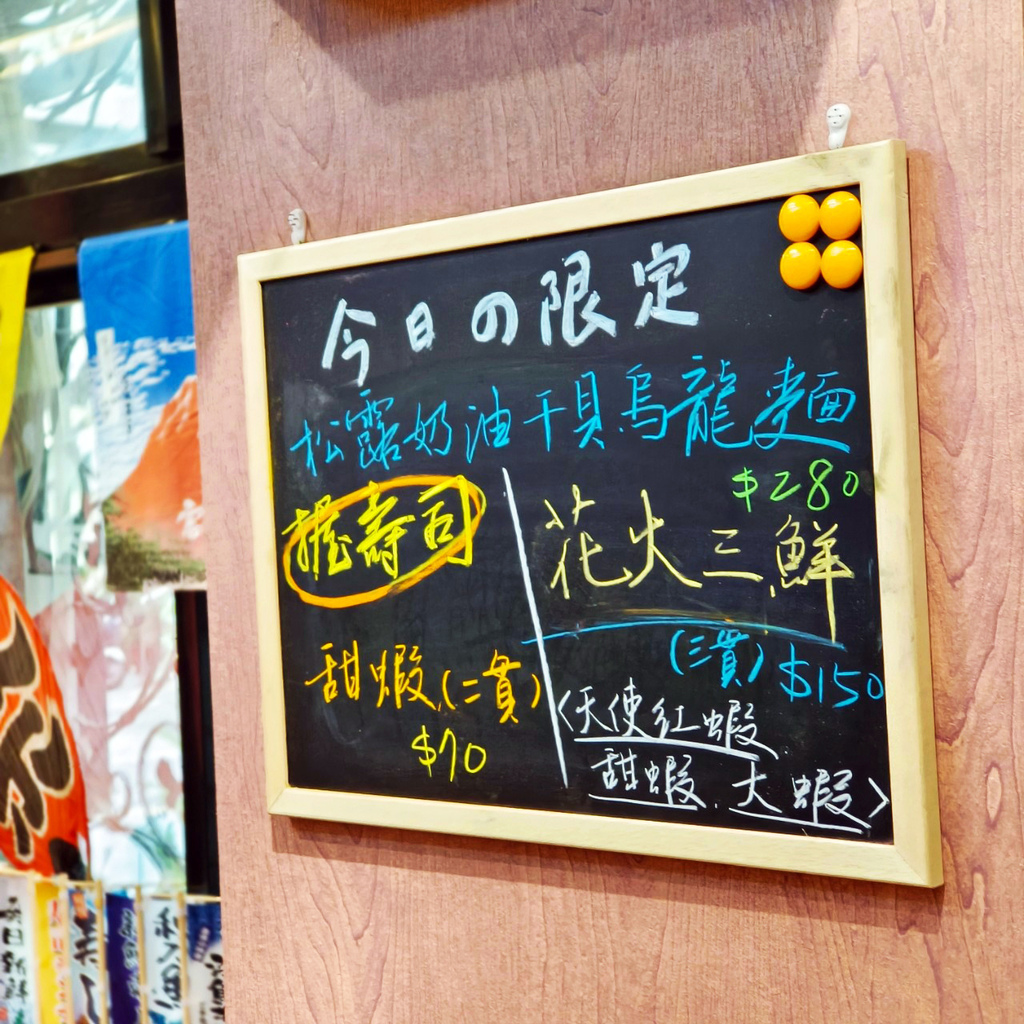 今日の限定
松露奶油干貝烏龍麵
$280
握壽司
甜蝦(二貫)
$70
花火三鮮
(三貫) $150
〈天使紅蝦
甜蝦.大蝦〉